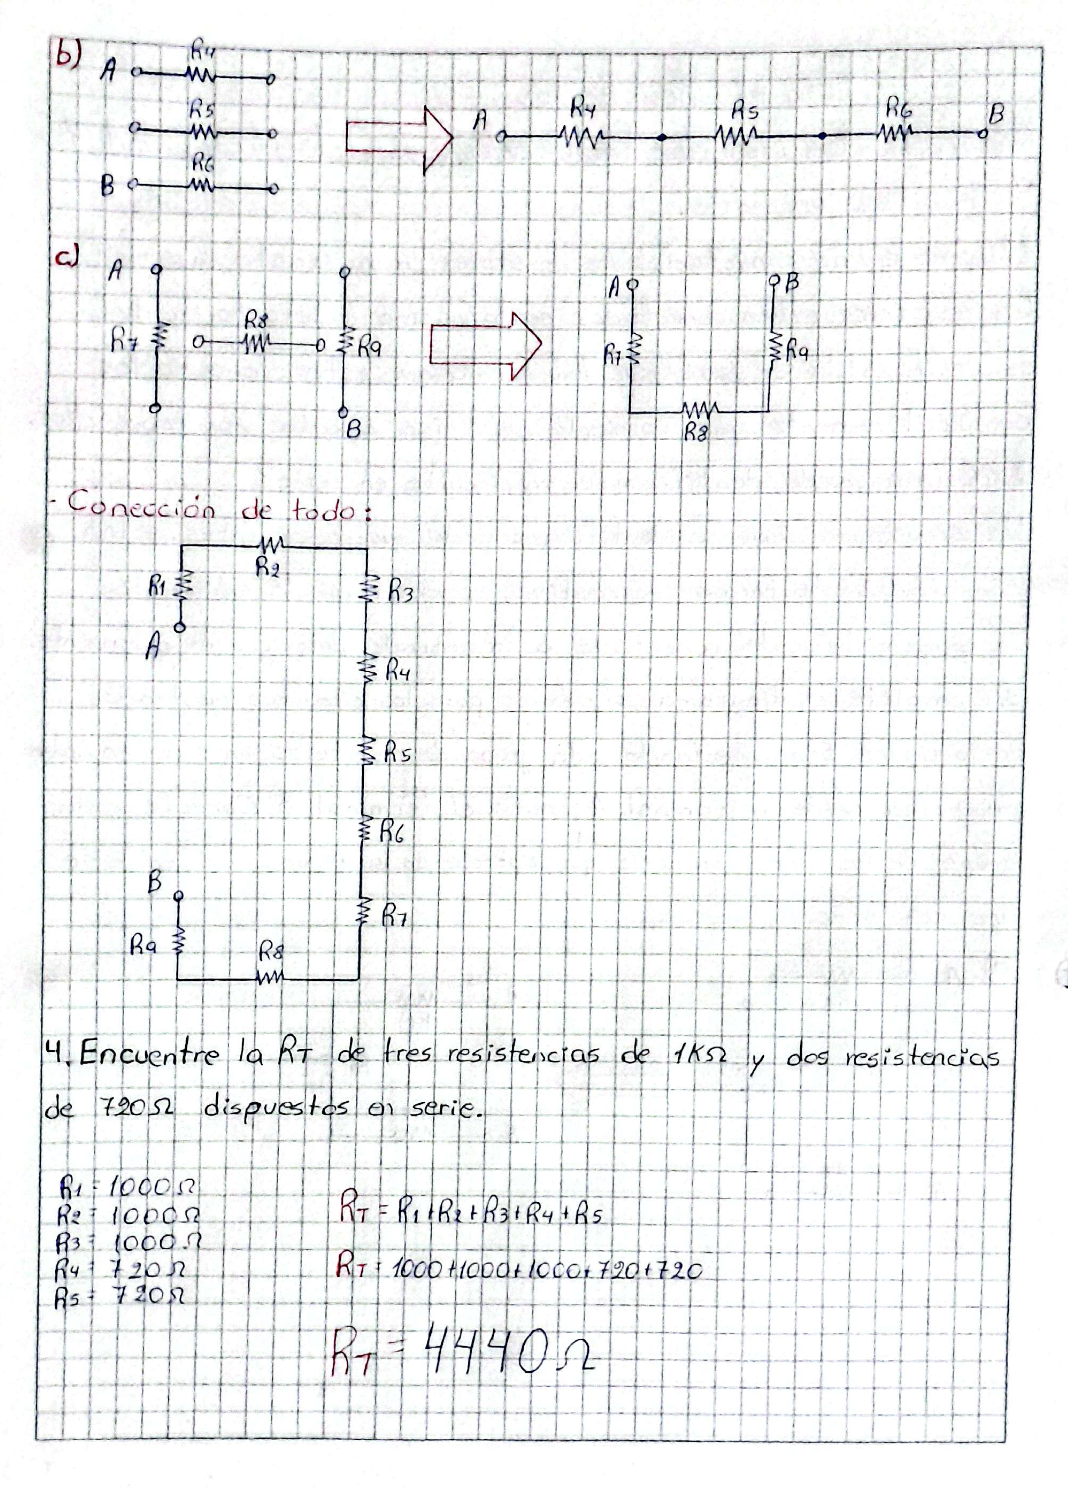 b)
A R4
R5
B R6
A R4 R5 R6 B
c)
A
R7 R8 R9
B
A B
R7 R9
R8
- Conección de todo:
R2
R1 R3
A
R4
R5
R6
B
R7
R9 R8
4. Encuentre la RT de tres resistencias de 1KΩ y dos resistencias
de 720Ω dispuestos en serie.
R1 = 1000Ω
R2 = 1000Ω
R3 = 1000Ω
R4 = 720Ω
R5 = 720Ω
RT = R1+R2+R3+R4+R5
RT = 1000+1000+1000+720+720
RT = 4440Ω